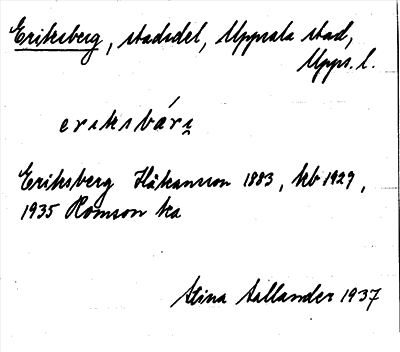 Eriksberg, stadsdel, Uppsala stad,
Upps. l.
eriksbári̯
Eriksberg Håkansson 1883, kb 1929,
1935 Romson ka
Stina Sallander 1937